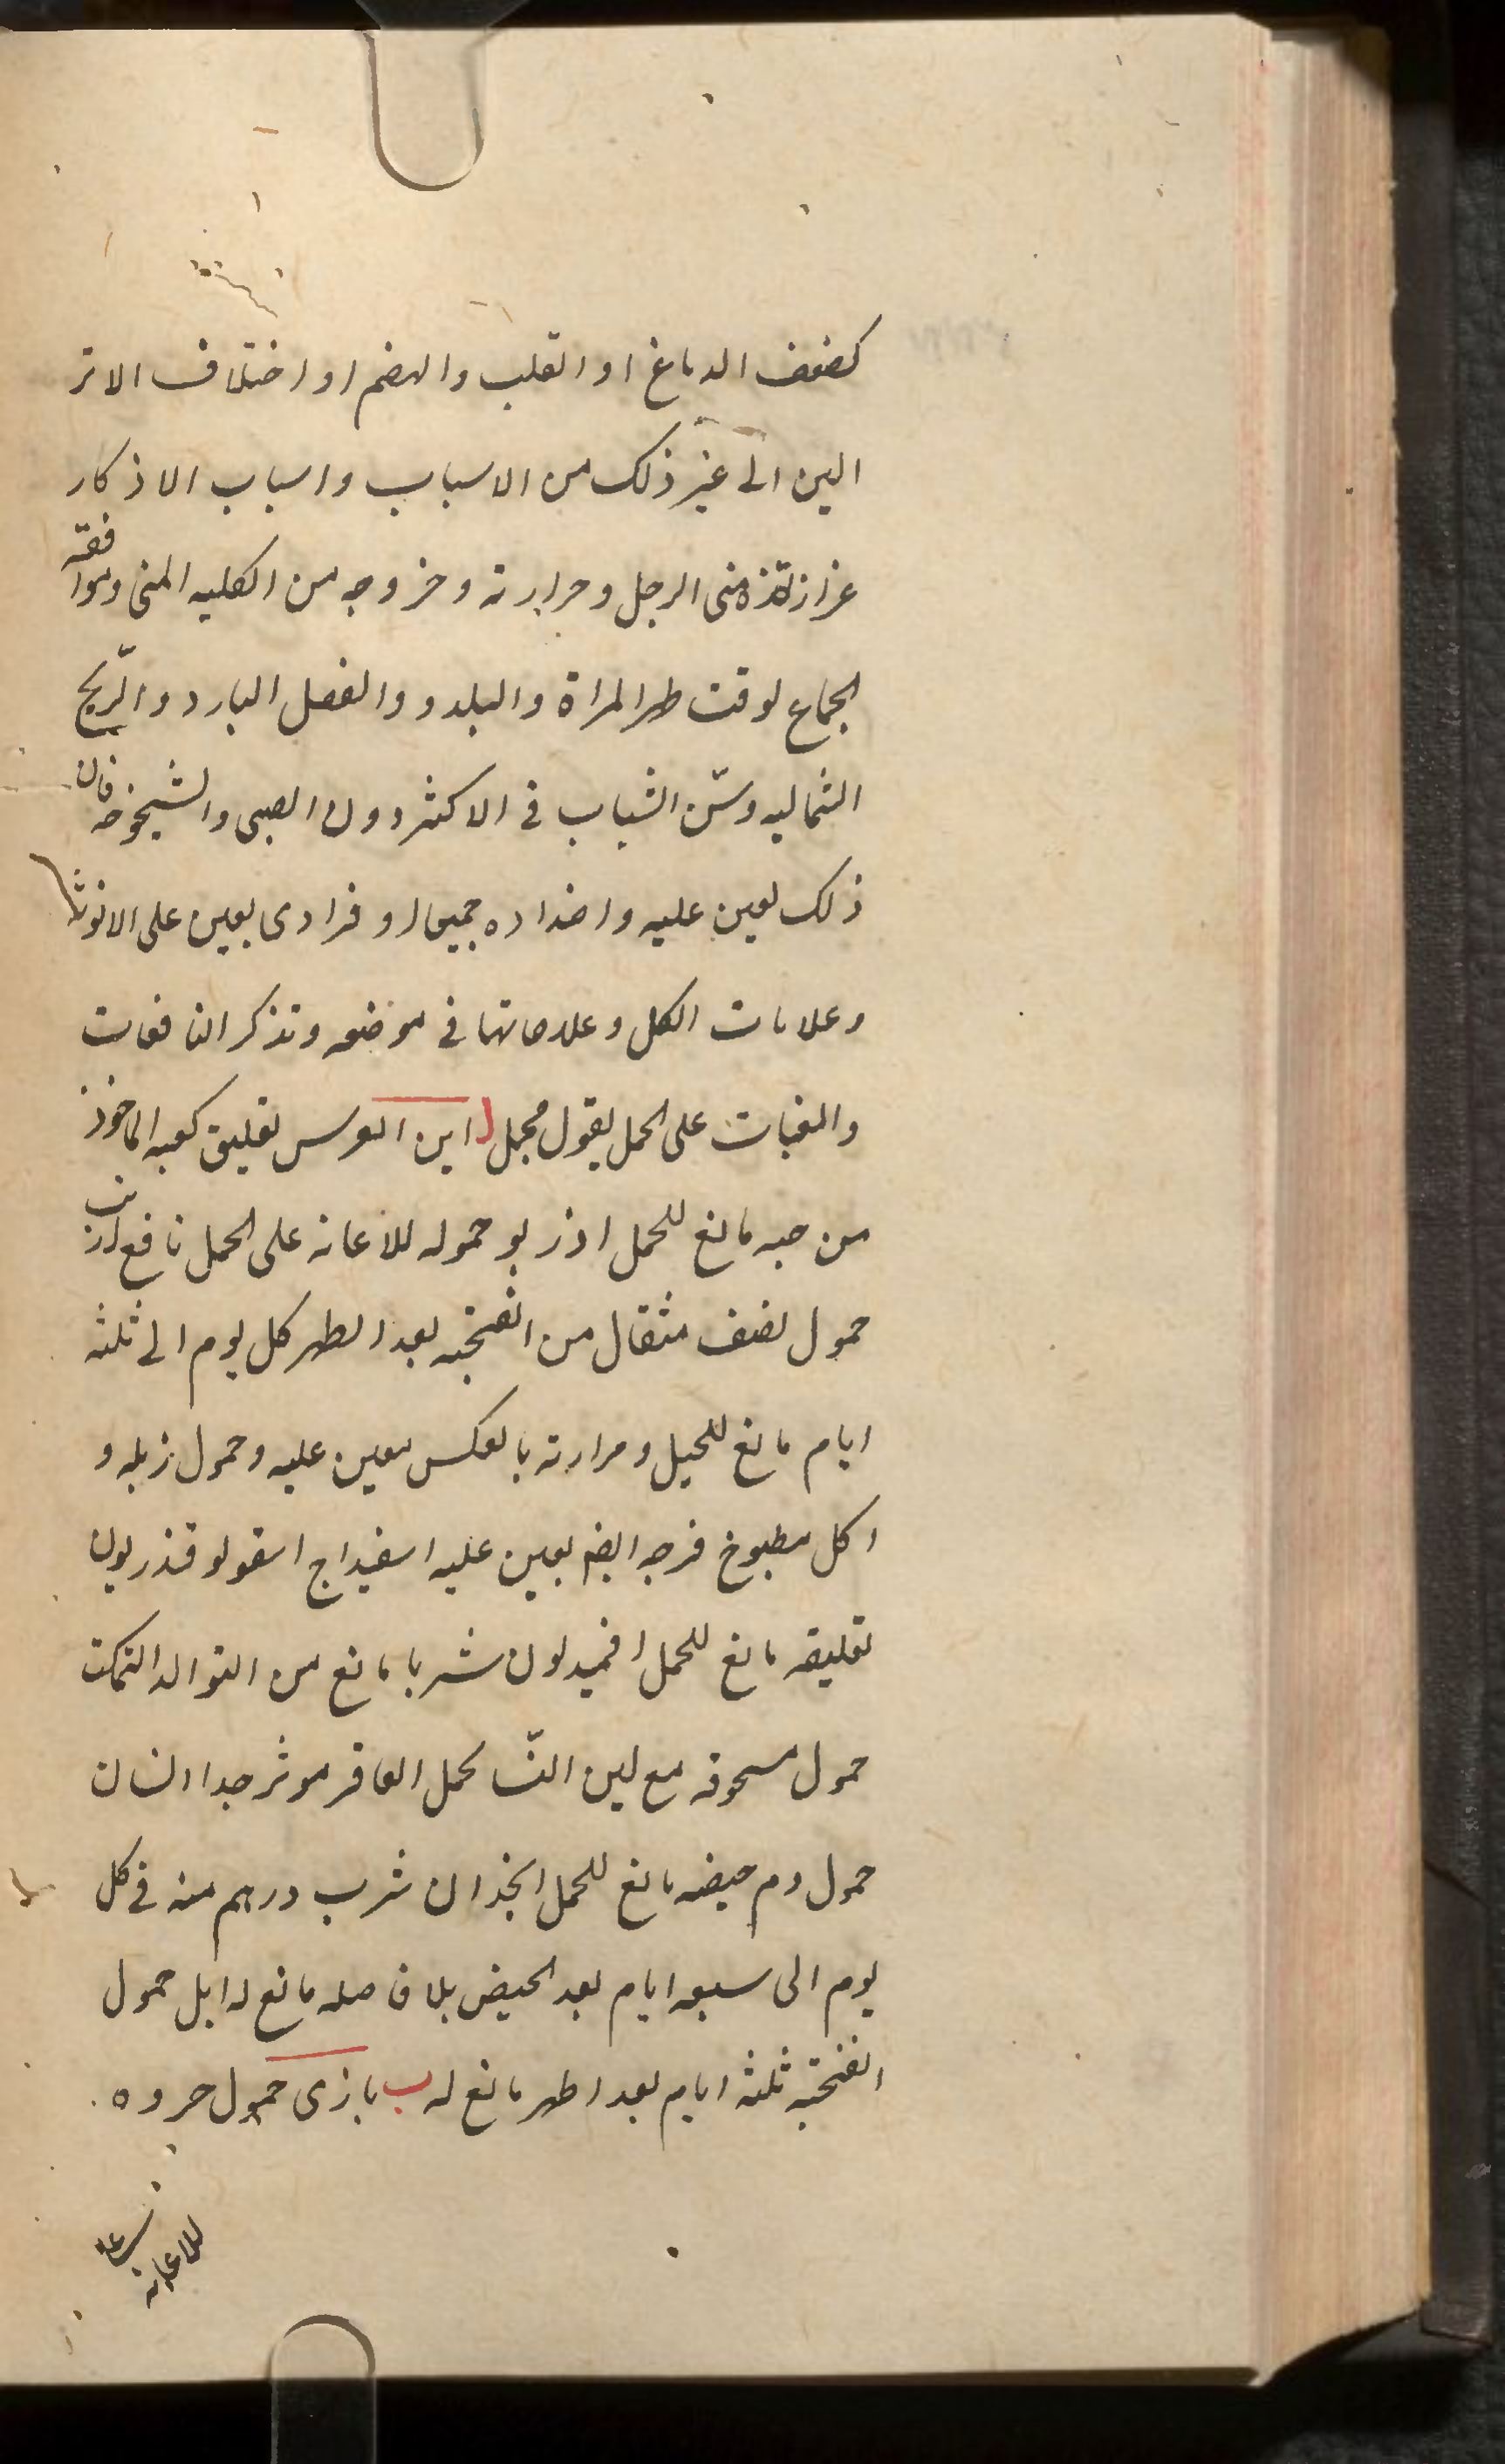 كضعف الدماغ او القلب والهضم او اختلاف الاتر
الين الى غير ذلك من الاسباب واسباب الاذكار
غزازة منى الرجل وحرارته وخروجه من الكليه اليمنى وموافقه
الجماع لوقت طهر المراة والبلد و والفصل البارد والريح
الشماليه وسن الشباب فى الاكثر دون الصبى والشيخوخه فان
ذلك يعين عليه واضداده جميعا او فرادى يعين على الانوثه
وعلامات الكل وعلاماتها فى موضعه ونذكر النافعات
والمعينات على الحمل بقول مجمل ا ابن العرس تعليق كعبه الماخوذ
من حيه مانع للحمل اذربو حموله للاعانه على الحمل نافع ارنب
حمول نصف مثقال من انفحته بعد الطهر كل يوم الى ثلثه
ايام مانع للحبل ومرارته بالعكس معين عليه وحمول زبله و
اكل مطبوخ فرجه ايضا يعين عليه اسفيداج اسقولوقندريون
تعليقه مانع للحمل افميديون شربا مانع من التوالد
حمول مسحوقه مع لبن النسا لحمل العاقر موثر جدا انسان
حمول دم حيضه مانع للحمل انجذان شرب درهم منه فى كل
يوم الى سبعه ايام بعد الحيض بلا فاصله مانع له ابل حمول
انفحته ثلثه ايام بعد اطهر مانع له ب بازى حمول خروه
للاعانه